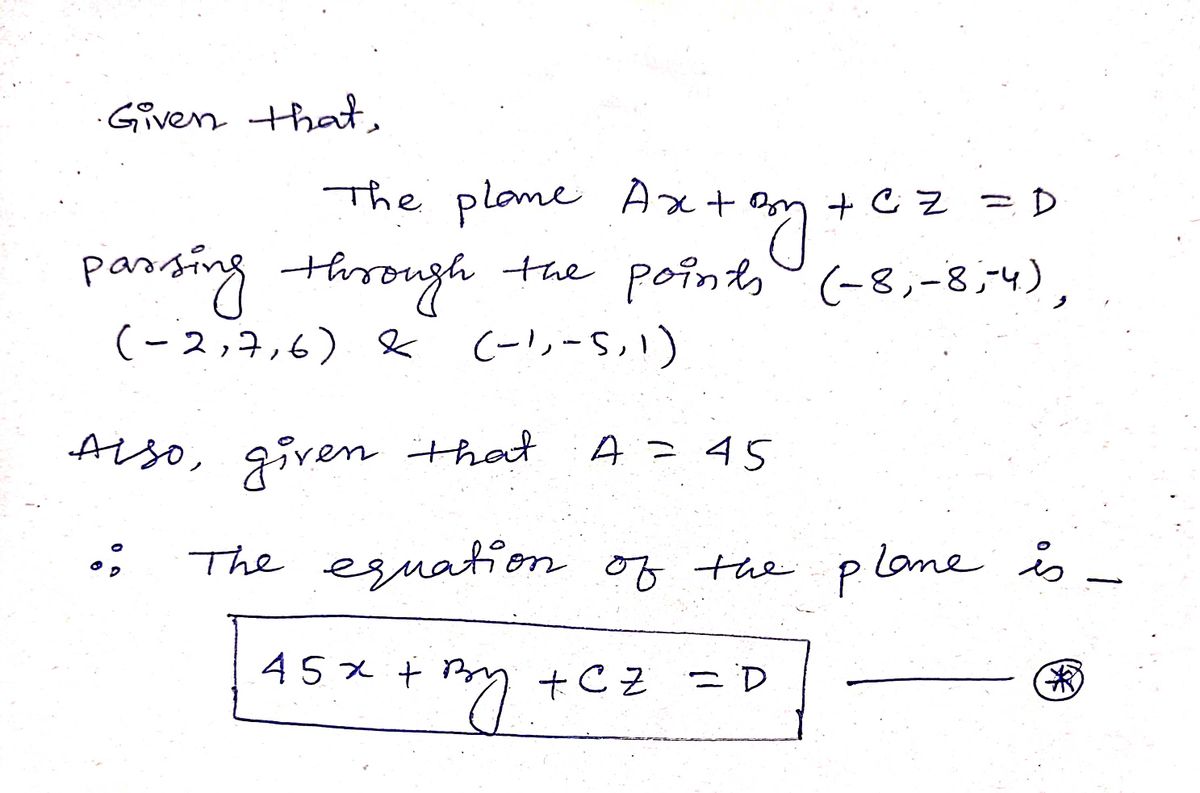 Given that,
The plane Ax + By + CZ = D
passing through the points (-8,-8,-4),
(-2,7,6) & (-1,-5,1)
Also, given that A = 45
∴ The equation of the plane is -
45x + By + CZ = D —— ⊛